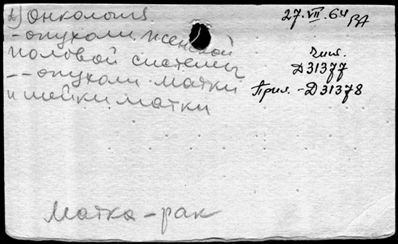 1) Онкология
- опухоли женской
половой системы
-- опухоли матки
и шейки матки
27.VII.64
Чит.
Д31377
Прил. - Д31378
Матка - рак